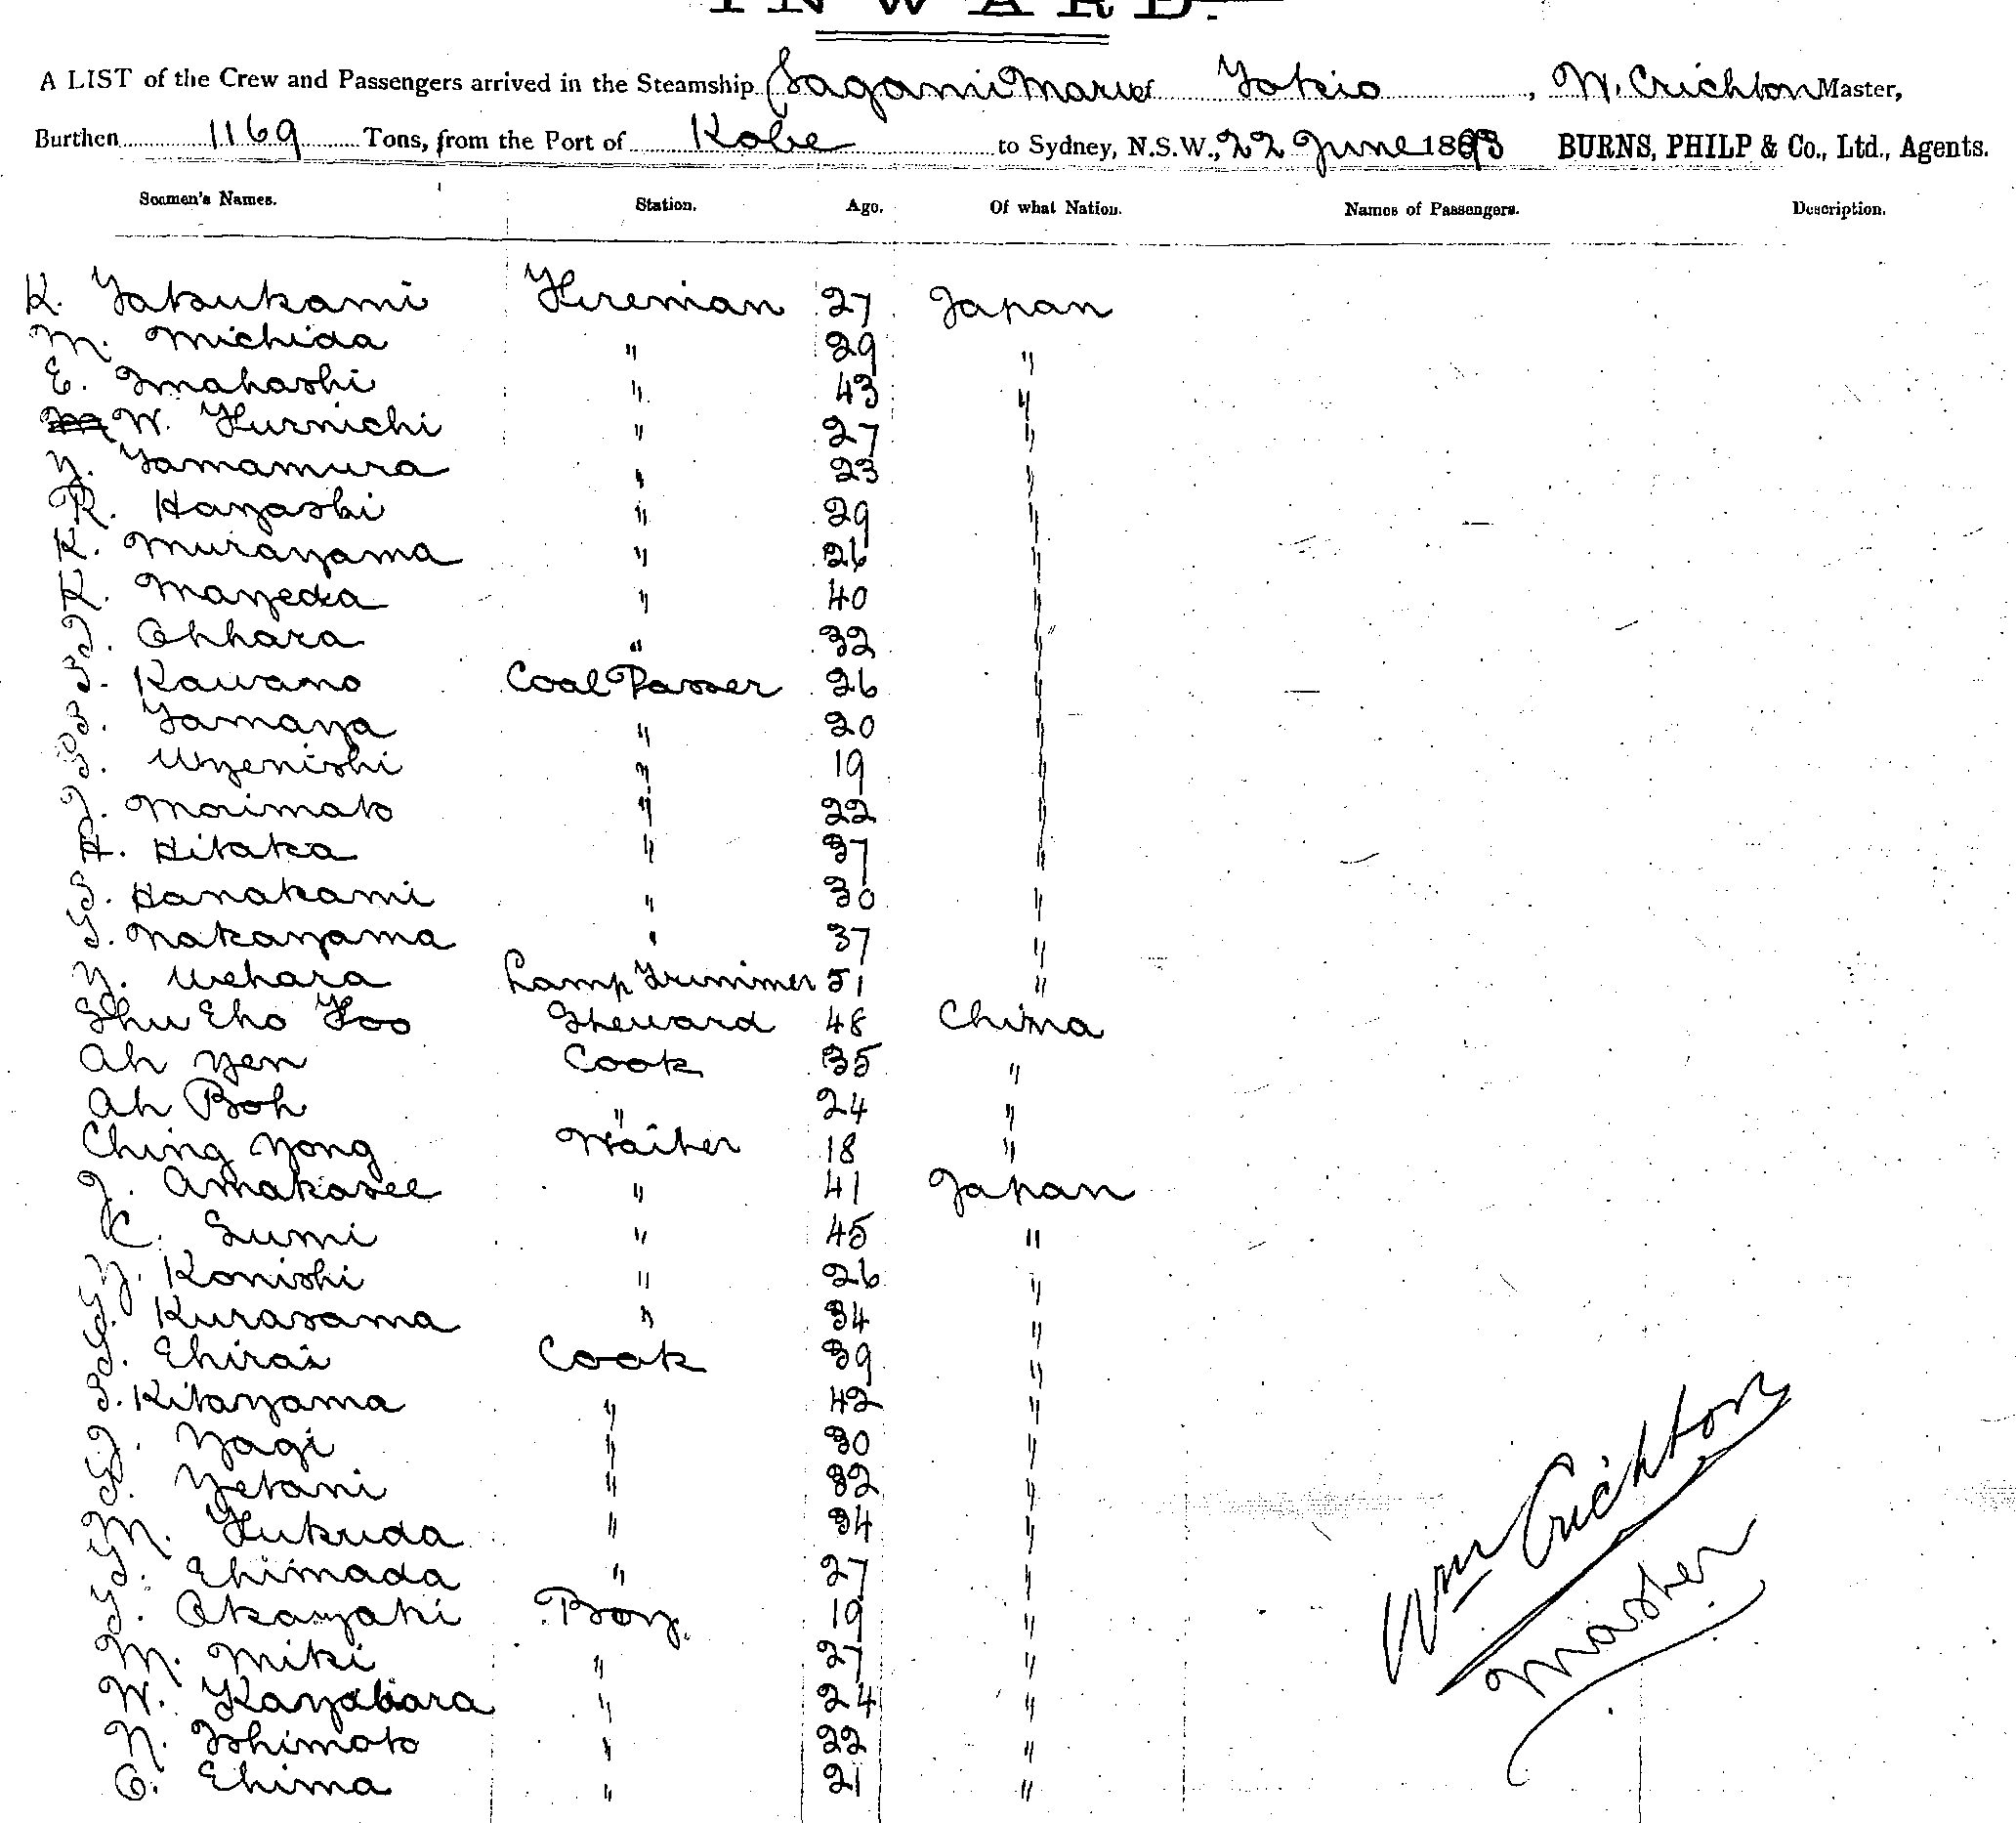 INWARD.
A LIST of the Crew and Passengers arrived in the Steamship Sagami Maru of Tokio, W. Crichton Master,
Burthen 1169 Tons, from the Port of Kobe to Sydney, N.S.W., 22 June 1893 BURNS, PHILP & Co., Ltd., Agents.
Seamen's Names. Station. Age. Of what Nation. Names of Passengers. Description.
K. Yatsukami Fireman 27 Japan
M. Michida " 29 "
E. Imahashi " 43 "
W. Furnichi " 27 "
Y. Yamamura " 23 "
R. Hayashi " 29 "
K. Murayama " 26 "
K. Mayeda " 40 "
J. Ohhara " 32 "
S. Kawano Coal Passer 26 "
S. Yamaya " 20 "
S. Uyenishi " 19 "
J. Morimoto " 22 "
H. Hitaka " 37 "
S. Hanakami " 30 "
S. Nakayama " 37 "
Y. Uehara Lamp Trimmer 51 "
Shu Eho Foo Steward 48 China
Ah Yen Cook 35 "
Ah Boh " 24 "
Ching Yong Waiter 18 "
J. Amakasee " 41 Japan
K. Sumi " 45 "
Y. Konishi " 26 "
S. Kurasama " 34 "
S. Ehirai Cook 39 "
S. Kitayama " 42 "
J. Yagi " 30 "
S. Yetani " 32 "
M. Fukuda " 34 "
S. Ehimada " 27 "
S. Okayaki Boy 19 "
M. Miki " 21 "
W. " 24 "
N. Ishimoto " 22 "
G. Ehima " 21 "
Wm Crichton
Master